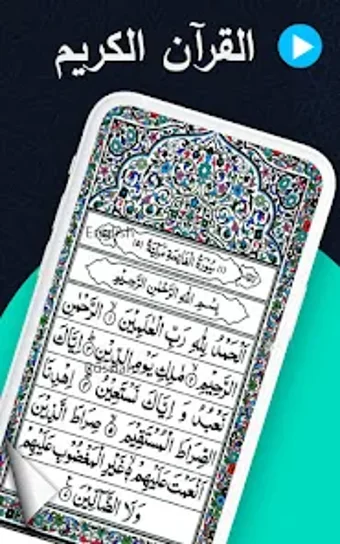 القرآن الكريم
English
(١) سُورَةُ الْفَاتِحَةِ مَكِّيَّةٌ (٥)
بِسْمِ اللهِ الرَّحْمٰنِ الرَّحِيْمِ
اَلْحَمْدُ لِلّٰهِ رَبِّ الْعٰلَمِيْنَ ۙ الرَّحْمٰنِ
الرَّحِيْمِ ۙ مٰلِكِ يَوْمِ الدِّيْنِ ؕ اِيَّاكَ
نَعْبُدُ وَ اِيَّاكَ نَسْتَعِيْنُ ؕ اِهْدِنَا
الصِّرَاطَ الْمُسْتَقِيْمَ ۙ صِرَاطَ الَّذِيْنَ
اَنْعَمْتَ عَلَيْهِمْ ۙ غَيْرِ الْمَغْضُوْبِ عَلَيْهِمْ
وَلَا الضَّآلِّيْنَ